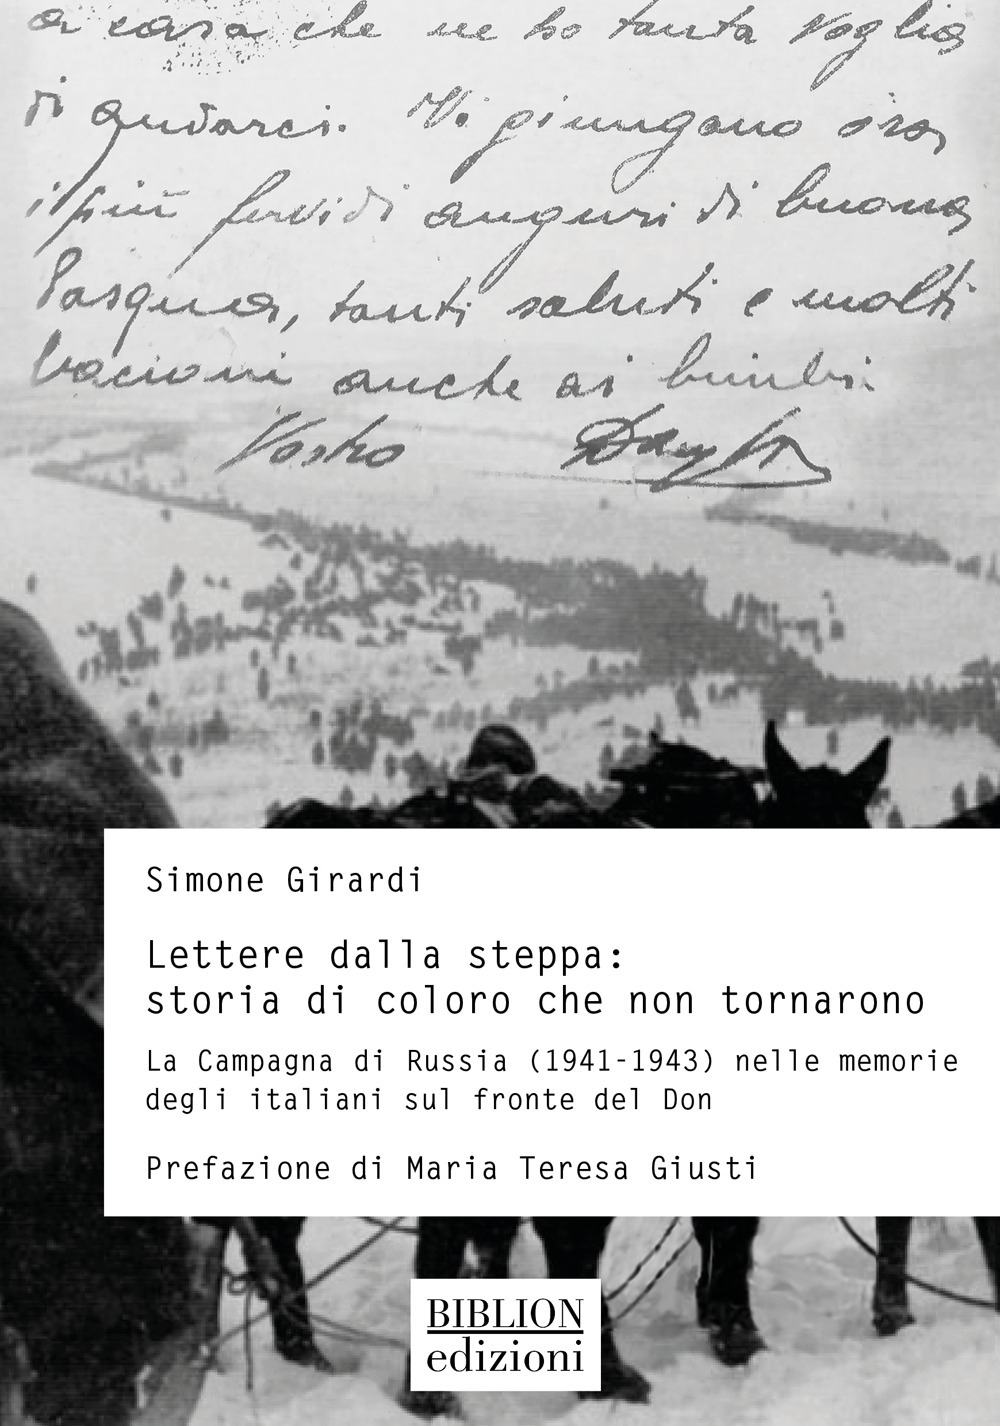 a casa che ne ho tanta voglia
di andarci. Vi giungano ora
i più fervidi auguri di buona
Pasqua, tanti saluti e molti
bacioni anche ai bimbi.
Vostro
Simone Girardi
Lettere dalla steppa:
storia di coloro che non tornarono
La Campagna di Russia (1941-1943) nelle memorie
degli italiani sul fronte del Don
Prefazione di Maria Teresa Giusti
BIBLION
edizioni